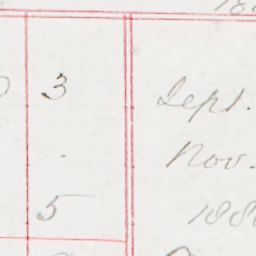 3 Sept.
. Nov.
5 188